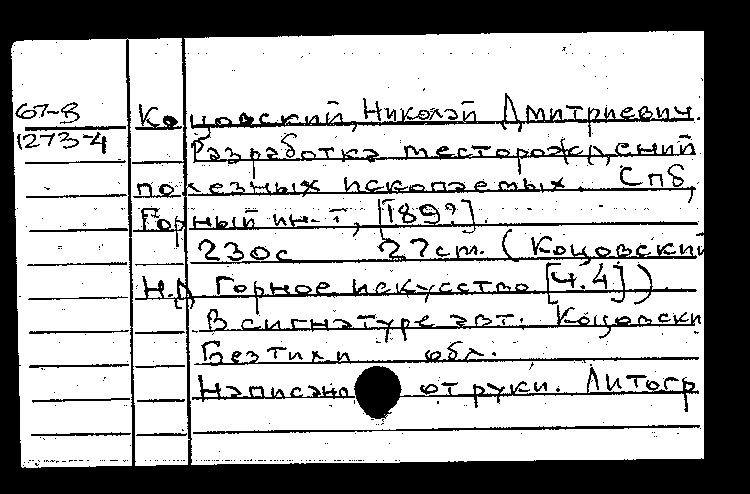 67-8
1273-4
Коцовский, Николай Дмитриевич.
Разработка месторождений
полезных ископаемых. Спб,
Горный ин-т, [189?]
230с 27см. (Коцовский
Н.Д Горное искусство [ч.4])
В сигнатуре авт: Коцовски
Без тит обл.
Написано от руки. Литогр